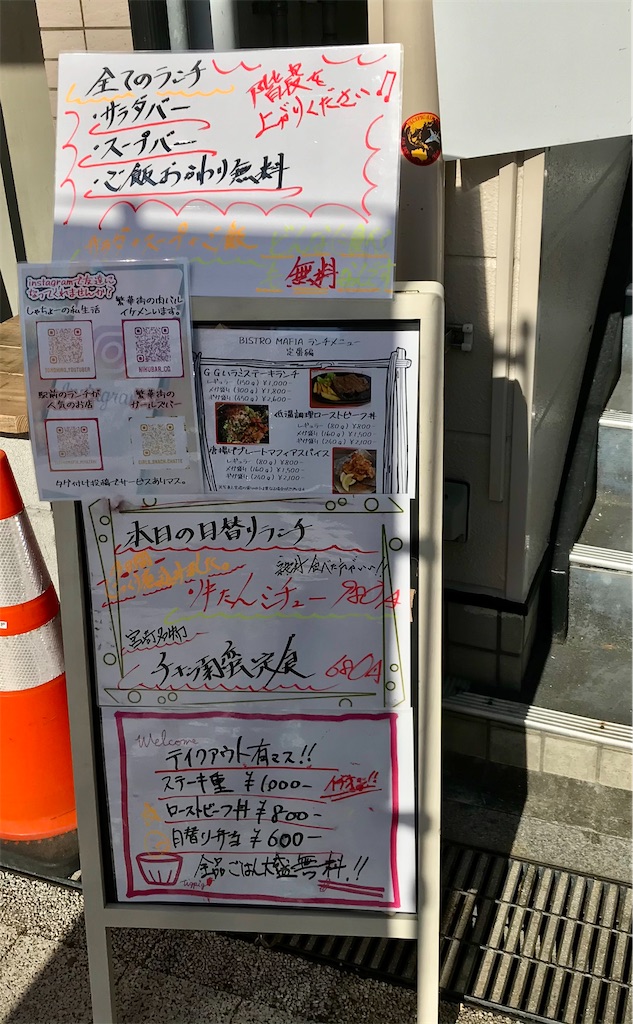 全てのランチ
・サラダバー
・スープバー
・ご飯おかわり無料
階段を
上がりください♪
無料
instagramで友達に
なってくれませんか?
しゃちょーの私生活
繁華街の肉バル
イケメンいます。
NIKUBAR.CO
駅前のランチが
人気のお店
繁華街の
ガールズバー
タグ付け投稿でサービスありマス。
BISTRO MAFIA ランチメニュー
定番編
レギュラー (150g) ¥1,000-
メガ盛り (300g) ¥1,800-
ギガ盛り (450g) ¥2,600-
低温調理ローストビーフ丼
レギュラー (80g) ¥800-
メガ盛り (160g) ¥1,500-
ギガ盛り (240g) ¥2,200-
唐揚げプレートマフィアスパイス
レギュラー (80g) ¥800-
メガ盛り (160g) ¥1,500-
ギガ盛り (240g) ¥2,200-
本日の日替りランチ
・牛たんシチュー 980円
宮崎名物
チキン南蛮定食 680円
Welcome
テイクアウト有マス!!
ステーキ重 ¥1000-
イチオシ!!
ローストビーフ丼 ¥800-
日替り弁当 ¥600-
全品ごはん大盛無料!!